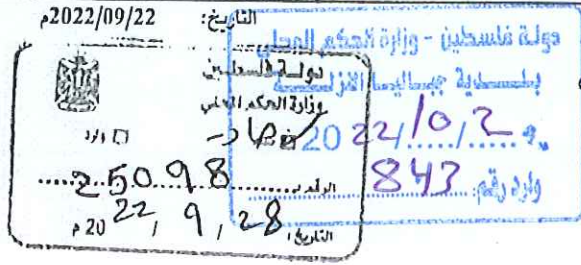 التاريخ: 2022/09/22م
دولة فلسطين - وزارة الحكم المحلي
بلدية جباليا النزلة
2022/10/2
وارد رقم: 843
دولة فلسطين
وزارة الحكم المحلي
صادر
وارد
الرقم: 25098
التاريخ: 28 / 9 / 2022 م